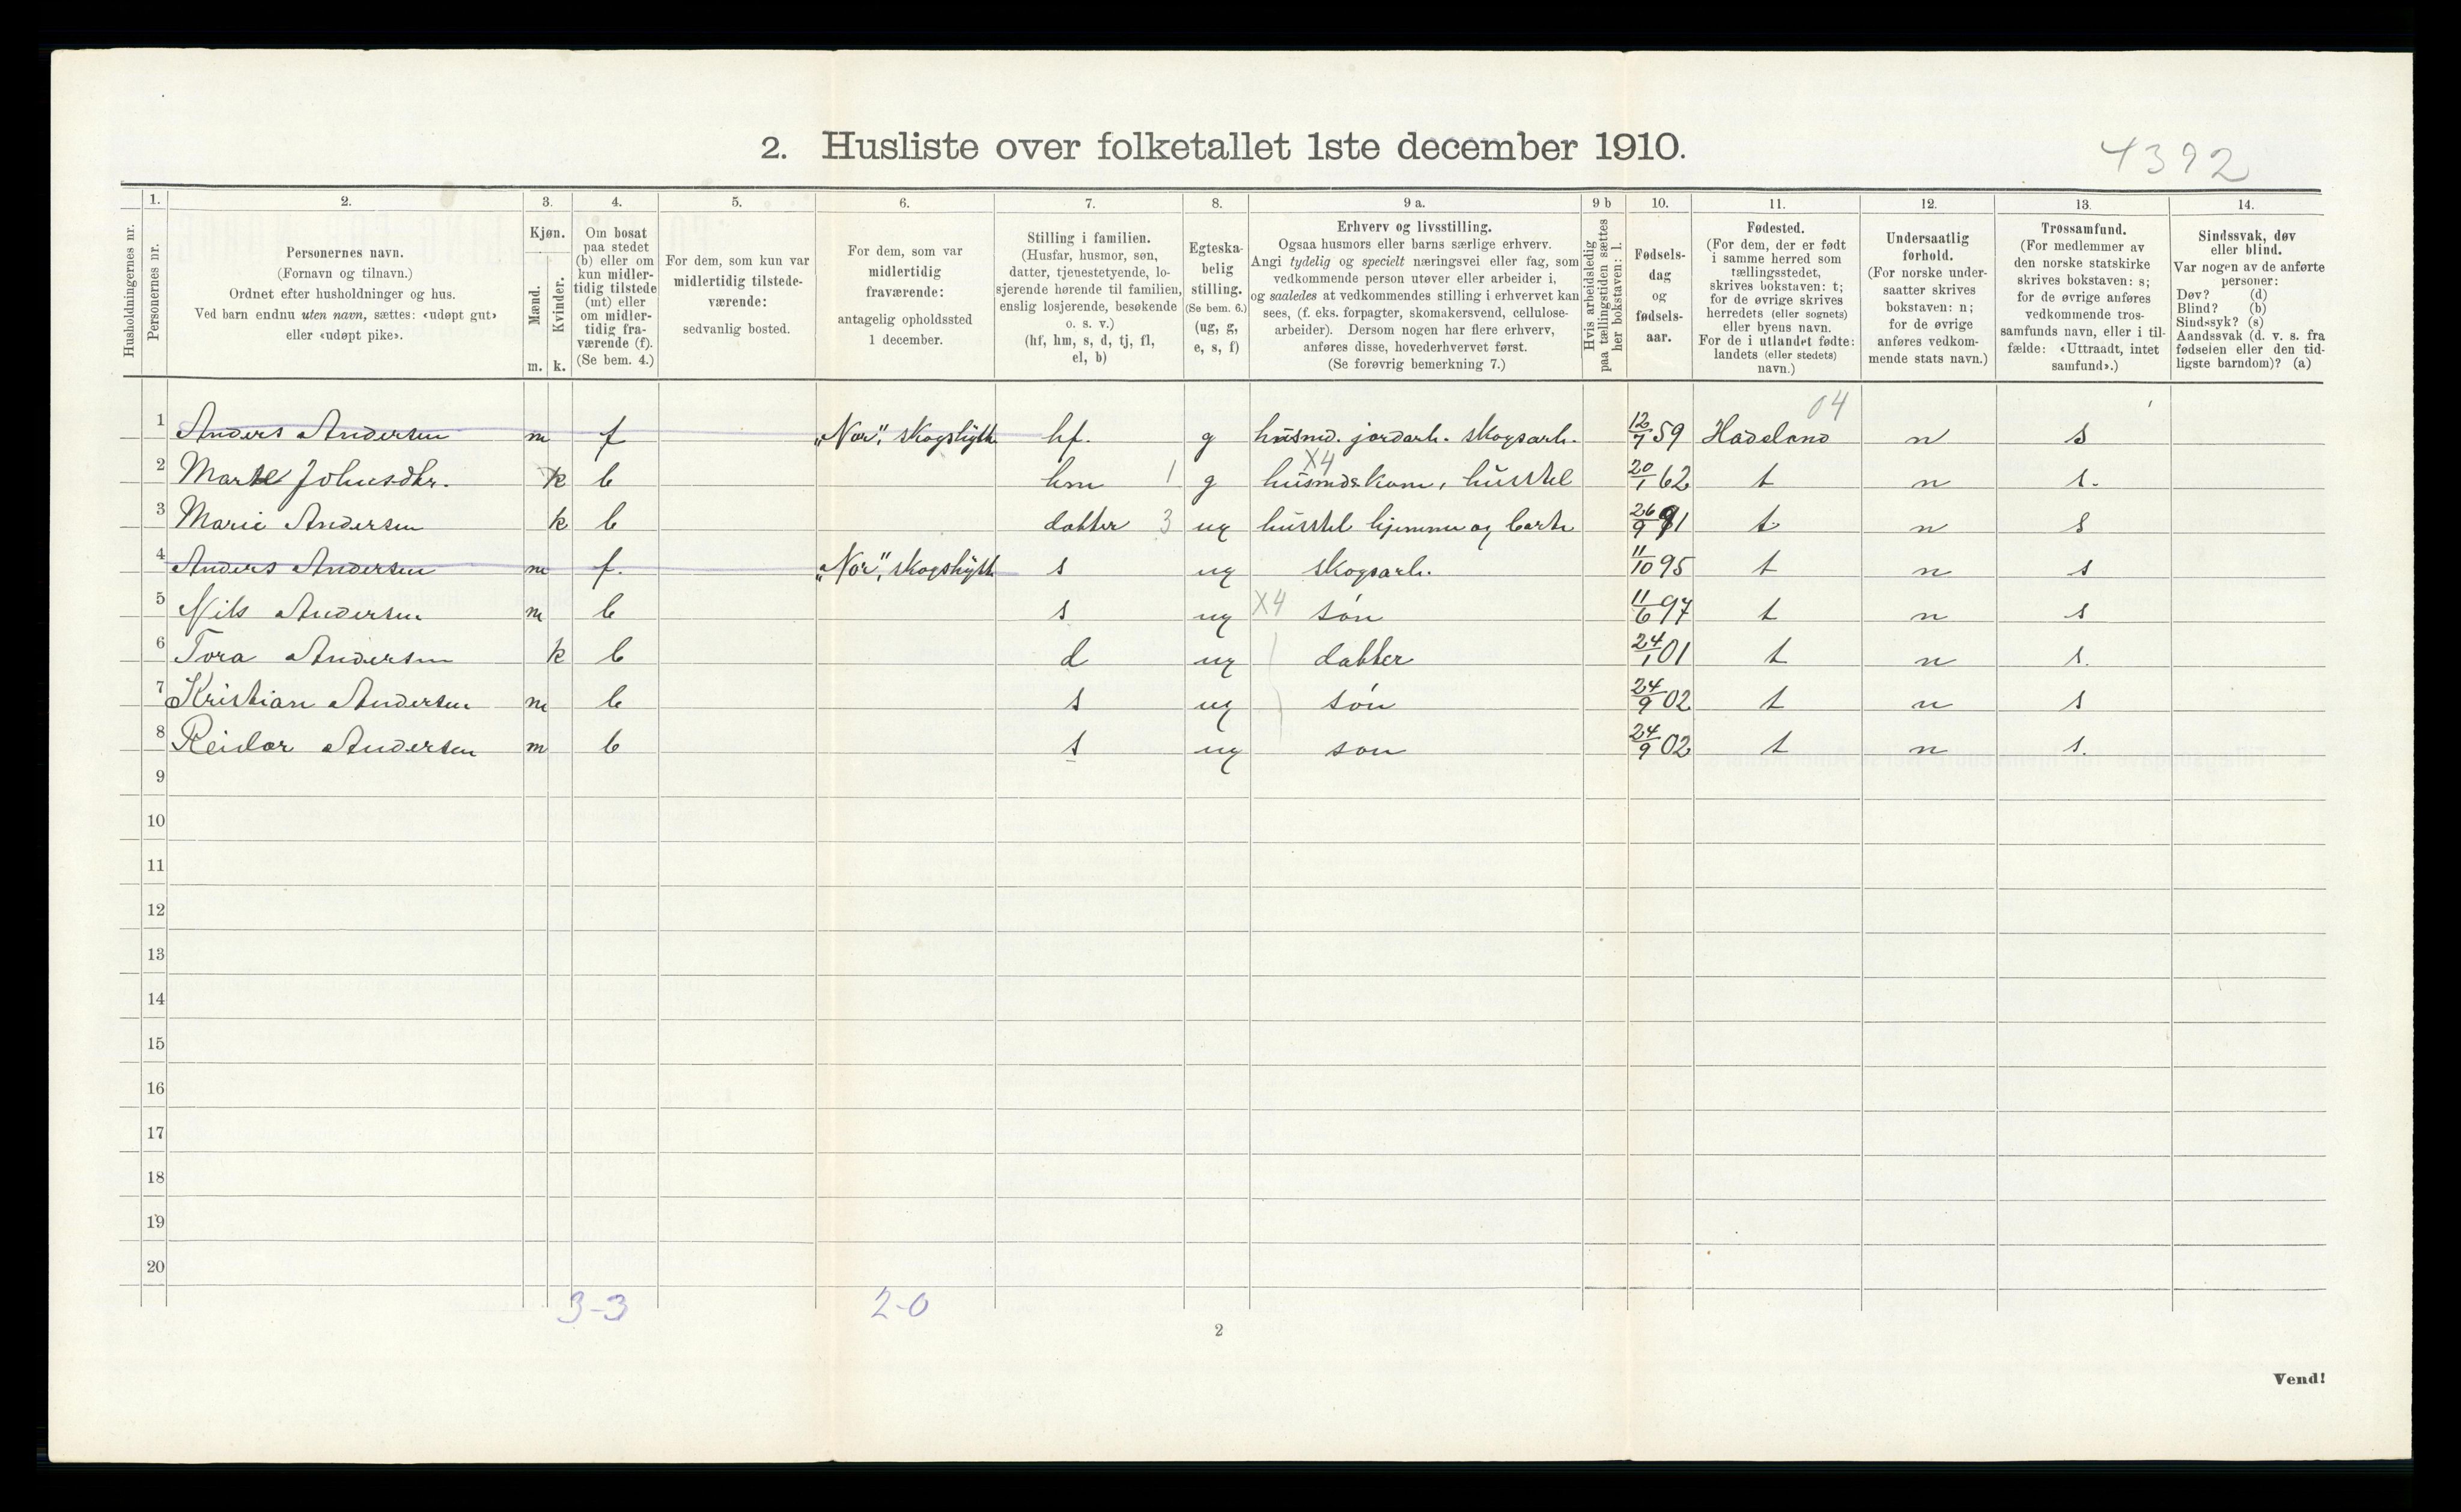 2. Husliste over folketallet 1ste december 1910.
4392
Husholdningernes nr.
1. Personernes nr.
2. Personernes navn.
(Fornavn og tilnavn.)
Ordnet efter husholdninger og hus.
Ved barn endnu uten navn, sættes: «udøpt gut»
eller «udøpt pike».
3. Kjøn.
Mænd. Kvinder.
m. k.
4. Om bosat
paa stedet
(b) eller om
kun midler-
tidig tilstede
(mt) eller
om midler-
tidig fra-
værende (f).
(Se bem. 4.)
5. For dem, som kun var
midlertidig tilstede-
værende:
sedvanlig bosted.
6. For dem, som var
midlertidig
fraværende:
antagelig opholdssted
1 december.
7. Stilling i familien.
(Husfar, husmor, søn,
datter, tjenestetyende, lo-
sjerende hørende til familien,
enslig losjerende, besøkende
o. s. v.)
(hf, hm, s, d, tj, fl,
el, b)
8. Egteska-
belig
stilling.
(Se bem. 6.)
(ug, g,
e, s, f)
9 a. Erhverv og livsstilling.
Ogsaa husmors eller barns særlige erhverv.
Angi tydelig og specielt næringsvei eller fag, som
vedkommende person utøver eller arbeider i,
og saaledes at vedkommendes stilling i erhvervet kan
sees, (f. eks. forpagter, skomakersvend, cellulose-
arbeider). Dersom nogen har flere erhverv,
anføres disse, hovederhvervet først.
(Se forøvrig bemerkning 7.)
9 b Hvis arbeidsledig
paa tællingstiden sættes
her bokstaven: l.
10. Fødsels-
dag
og
fødsels-
aar.
11. Fødested.
(For dem, der er født
i samme herred som
tællingsstedet,
skrives bokstaven: t;
for de øvrige skrives
herredets (eller sognets)
eller byens navn.
For de i utlandet fødte:
landets (eller stedets)
navn.)
12. Undersaatlig
forhold.
(For norske under-
saatter skrives
bokstaven: n;
for de øvrige
anføres vedkom-
mende stats navn.)
13. Trossamfund.
(For medlemmer av
den norske statskirke
skrives bokstaven: s;
for de øvrige anføres
vedkommende tros-
samfunds navn, eller i til-
fælde: «Uttraadt, intet
samfund».)
14. Sindssvak, døv
eller blind.
Var nogen av de anførte
personer:
Døv? (d)
Blind? (b)
Sindssyk? (s)
Aandssvak (d. v. s. fra
fødselen eller den tid-
ligste barndom)? (a)
04
1 Anders Andersen m f "Nor", skogshytte hf. g husmd. jordarb. skogsarb. 12/7 59 Hadeland n s
X4
2 Marte Johnsdtr. k b hm 1 g husmdskone, husstel 20/1 62 t n s.
3 Marie Andersen k b datter 3 ug husstel hjemme og 26/9 91 t n s
4 Anders Andersen m f. "Nor", skogshytte s ug skogsarb. 11/10 95 t n s
5 Nils Andersen m b s ug X4 søn 11/6 97 t n s
6 Tora Andersen k b d ug datter 24/1 01 t n s.
7 Kristian Andersen m b s ug søn 24/9 02 t n s
8 Reidar Andersen m b s ug søn 24/9 02 t n s.
9
10
11
12
13
14
15
16
17
18
19
20
3-3 2-0
2
Vend!